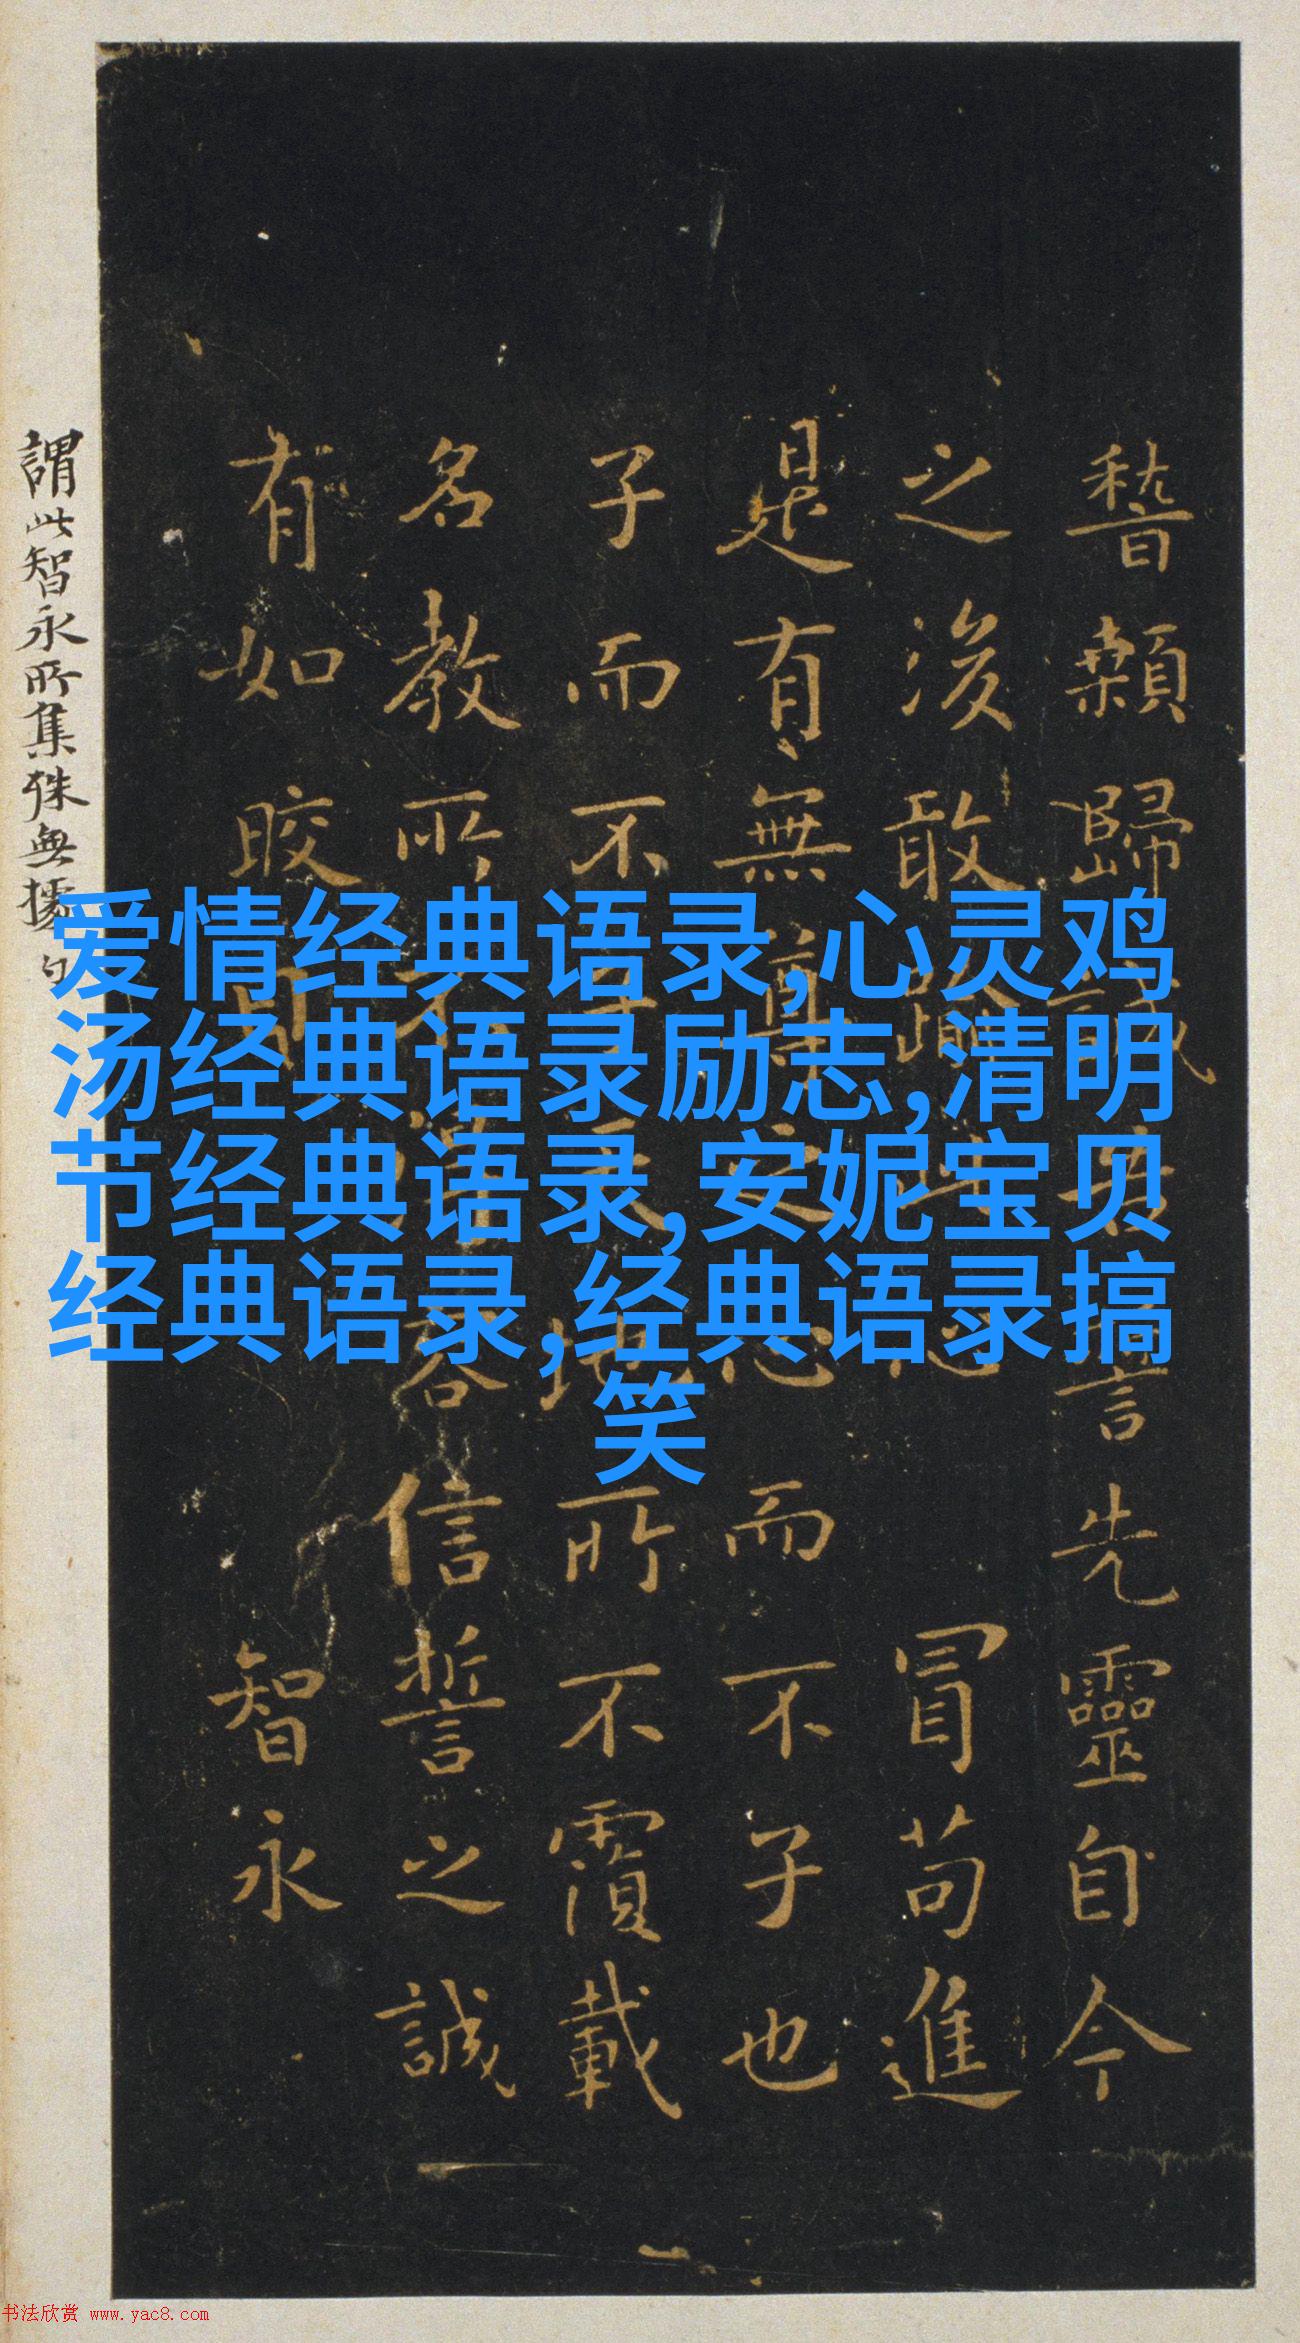 稽顙歸誠
誓言先靈自今
之後敢
冒苟進
是有無尊之心而不子也
子而不子天地所不覆載
名教所不得容信誓之誠
有如皎日
智永
謂此智永所集殊無據
爱情经典语录,心灵鸡
汤经典语录励志,清明
节经典语录,安妮宝贝
经典语录,经典语录搞
笑
书法欣赏 www.yac8.com